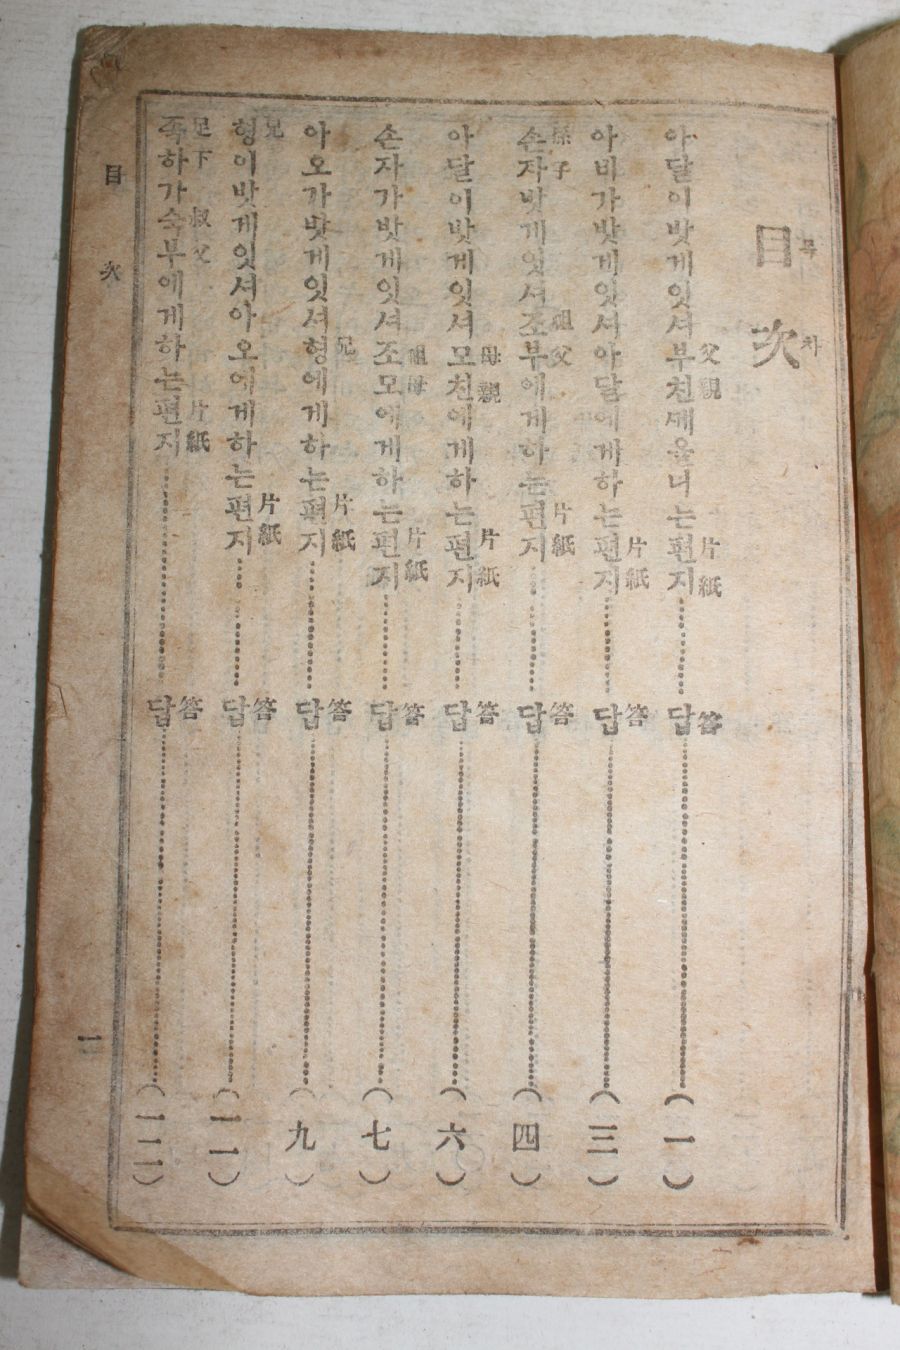 目次
목차
아달이밧게잇셔부친쎄올니는편지 답 (一)
父親 片紙 答
아비가밧게잇셔아달에게하는편지 답 (三)
片紙 答
손자밧게잇셔조부에게하는편지 답 (四)
孫子 祖父 片紙 答
아달이밧게잇셔모친에게하는편지 답 (六)
母親 片紙 答
손자가밧게잇셔조모에게하는편지 답 (七)
祖母 片紙 答
아오가밧게잇셔형에게하는편지 답 (九)
兄 片紙 答
형이밧게잇셔아오에게하는편지 답 (一一)
兄 片紙 答
족하가숙부에게하는편지 답 (一二)
足下 叔父 片紙 答
目次 一